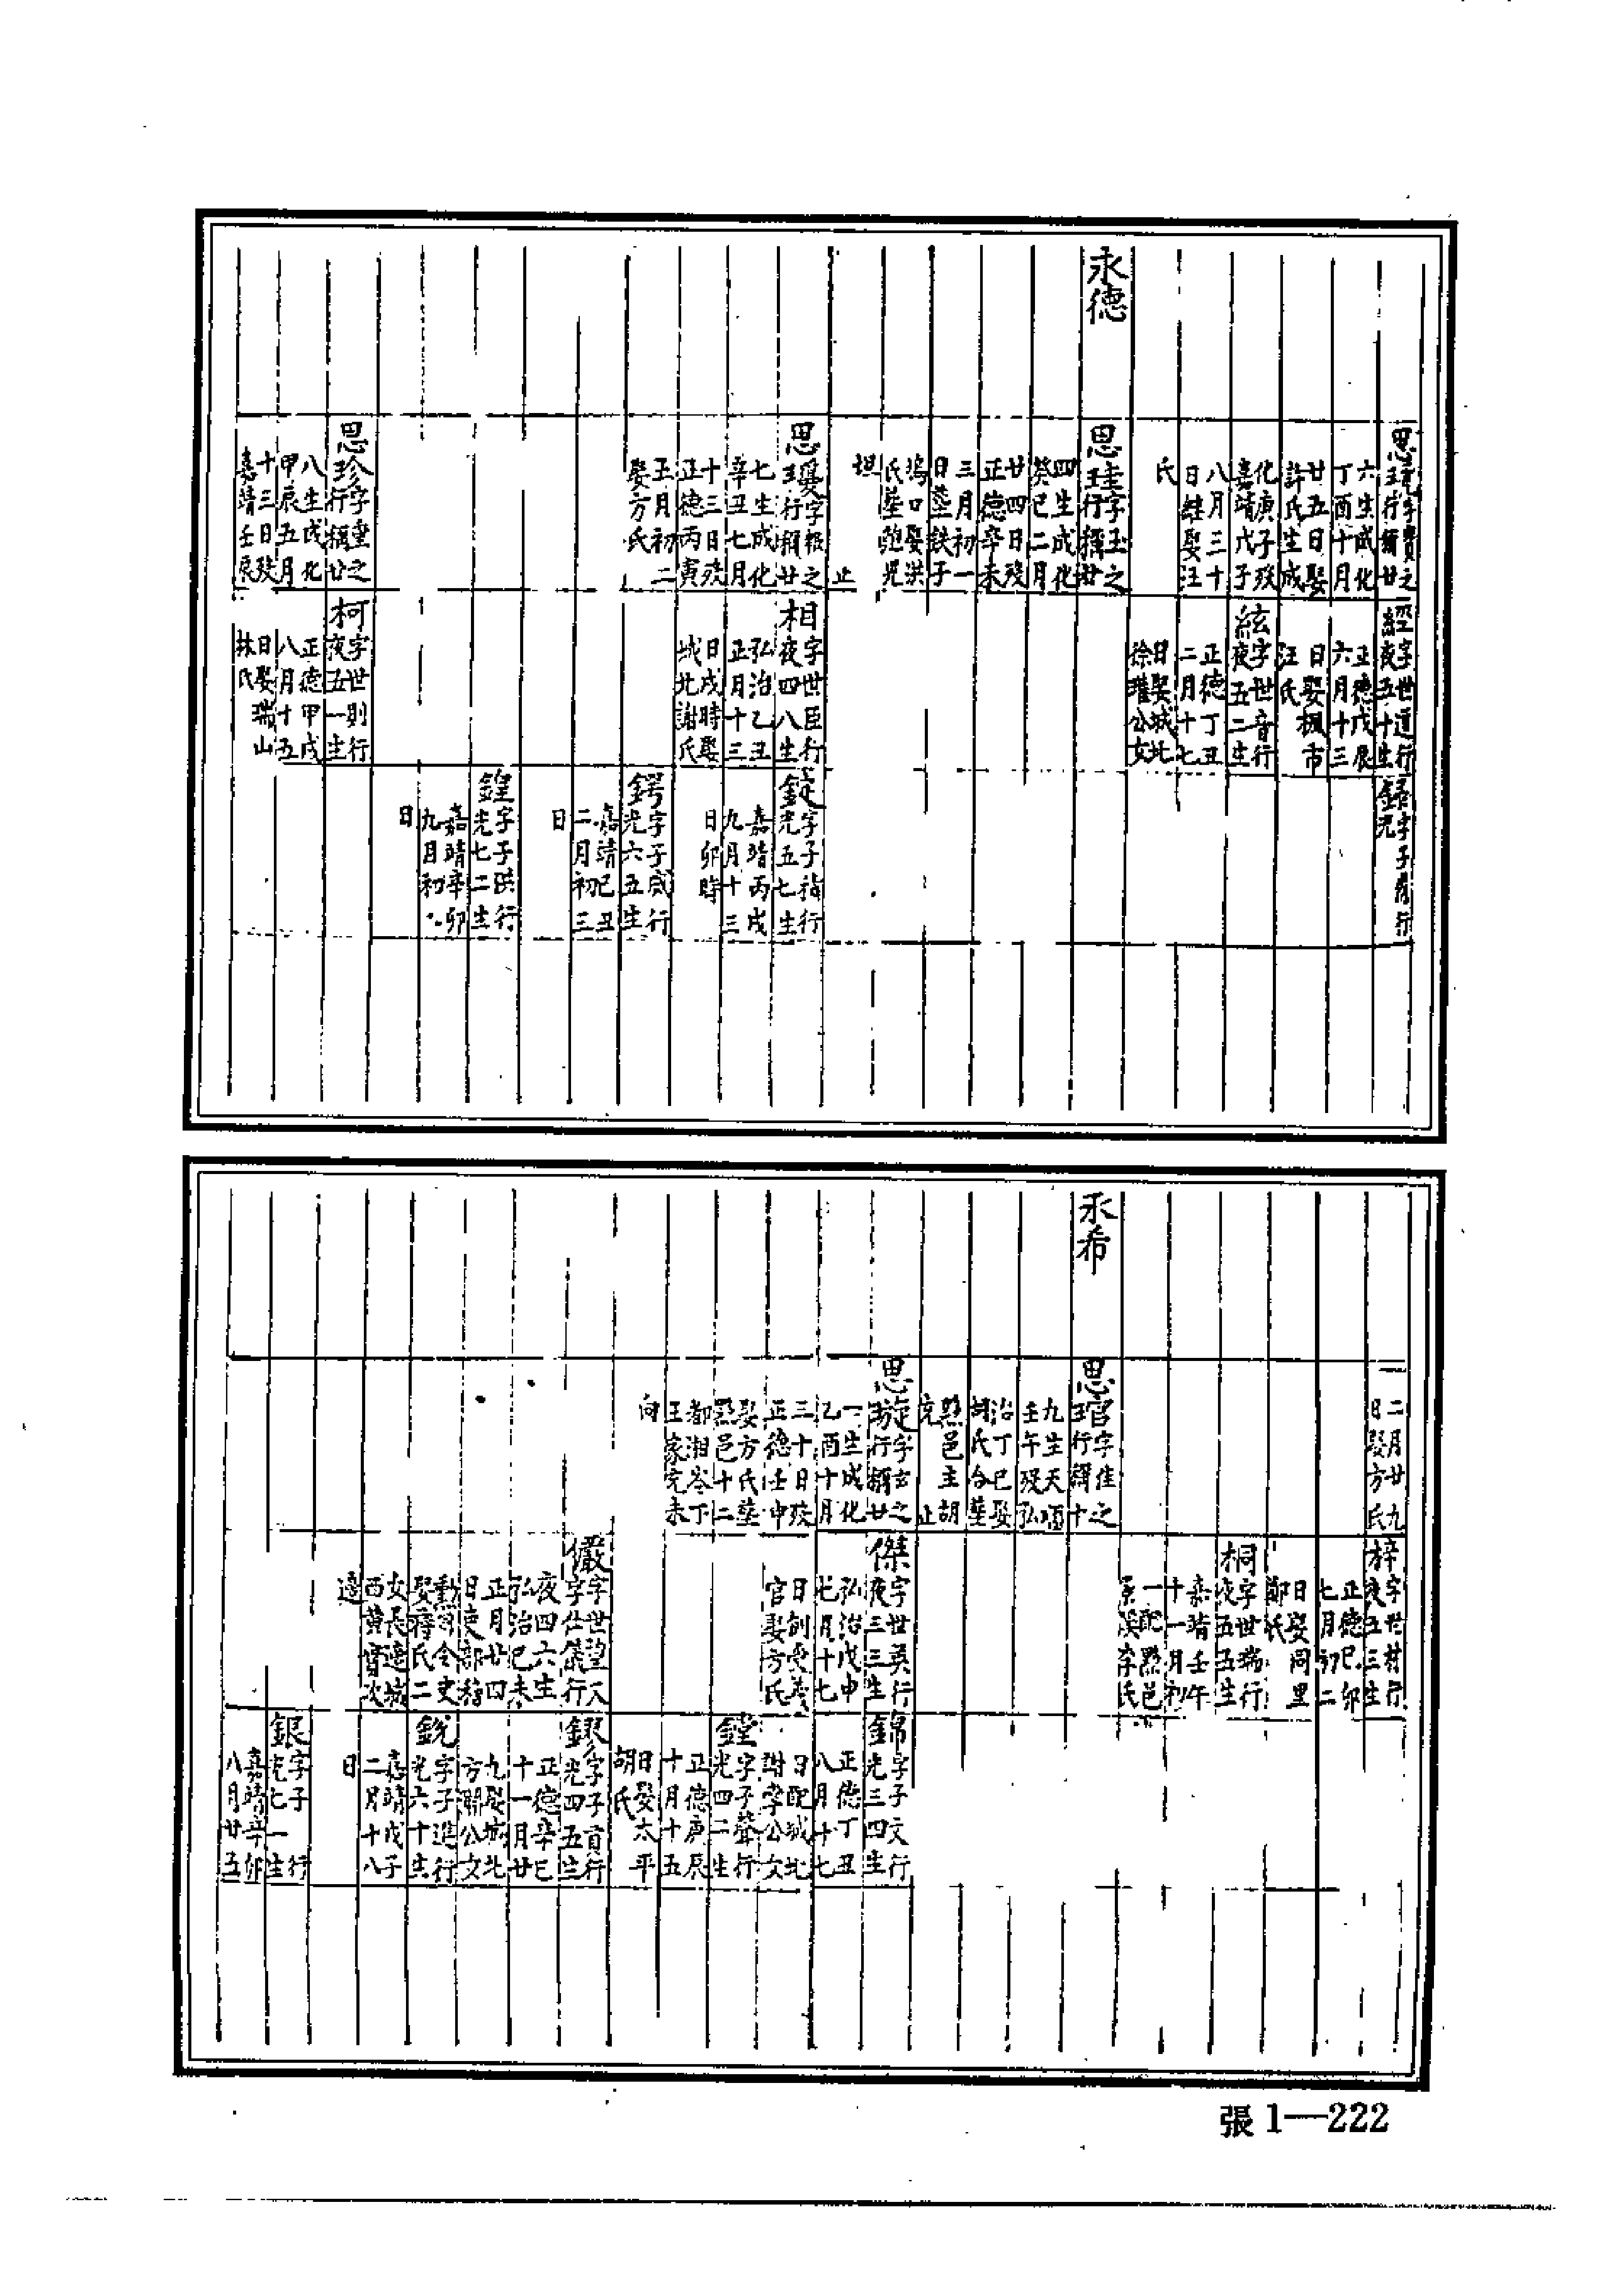 永德
思琉字寶之
行稱廿
六生成化
丁酉十月
廿五日娶
許氏生成
化庚子歿
嘉靖戊子
八月三十
日継娶汪
氏
經字世道行
夜五十生
正德戊辰
六月十三
日娶楓市
汪氏
絃字世音行
夜五二生
正德丁丑
二月十七
日娶城北
徐瓘公女
思珪字玉之
行稱廿
四生成化
癸巳二月
廿四日歿
正德辛未
三月初一
日塟鉄子
塢口娶洪
氏塟
坦
止
思字振之
行稱廿
七生成化
辛丑七月
十三日歿
正德丙寅
五月初二
娶方氏
相字世臣行
夜四八生
弘治乙丑
正月十三
日戌時娶
城北謝氏
錠字子行
光五七生
嘉靖丙戌
九月十三
日卯時
鍔字子威行
光六五生
嘉靖己丑
二月初三
日
鍠字子行
光七二生
嘉靖辛卯
九月初八
日
思珍字重之
行稱廿
八生成化
甲辰五月
十三日歿
嘉靖壬辰
柯字世則行
夜五一生
正德甲戌
八月十五
日娶瑞山
林氏
永希
二月廿九
日娶方氏
梓字世材行
夜五三生
正德己卯
七月初二
日娶同里
鄭氏
桐字世瑞行
夜五五生
嘉靖壬午
十一月初
一配黟邑
李氏
思琯字佳之
行稱十
九生天順
壬午歿弘
治丁巳娶
胡氏合塟
黟邑主胡
充
止
思璇字玄之
行稱廿
一生成化
乙酉十月
三十日歿
正德壬申
娶方氏塟
黟邑十二
都湘岺下
王家亢未
向
傑字世英行
夜三三生
弘治戊申
七月十七
日創受義
官娶方氏
錦字子文行
光三四生
正德丁丑
八月十七
日配城北
謝孛公女
鏜字子聲行
光四二生
正德庚辰
十月十五
日娶太平
胡氏
儼字世望又
字仕儀行
夜四六生
弘治己未
正月廿四
日吏部稽
勳司令史
娶蔣氏二
女長適城
西黃富次
適
字子貢行
光四五生
正德辛巳
十一月廿
九娶城北
方瀾公女
銳字子進行
光六十生
嘉靖戊子
二月十八
日
銀字子 行
光七一生
嘉靖辛卯
八月廿五
張1—222